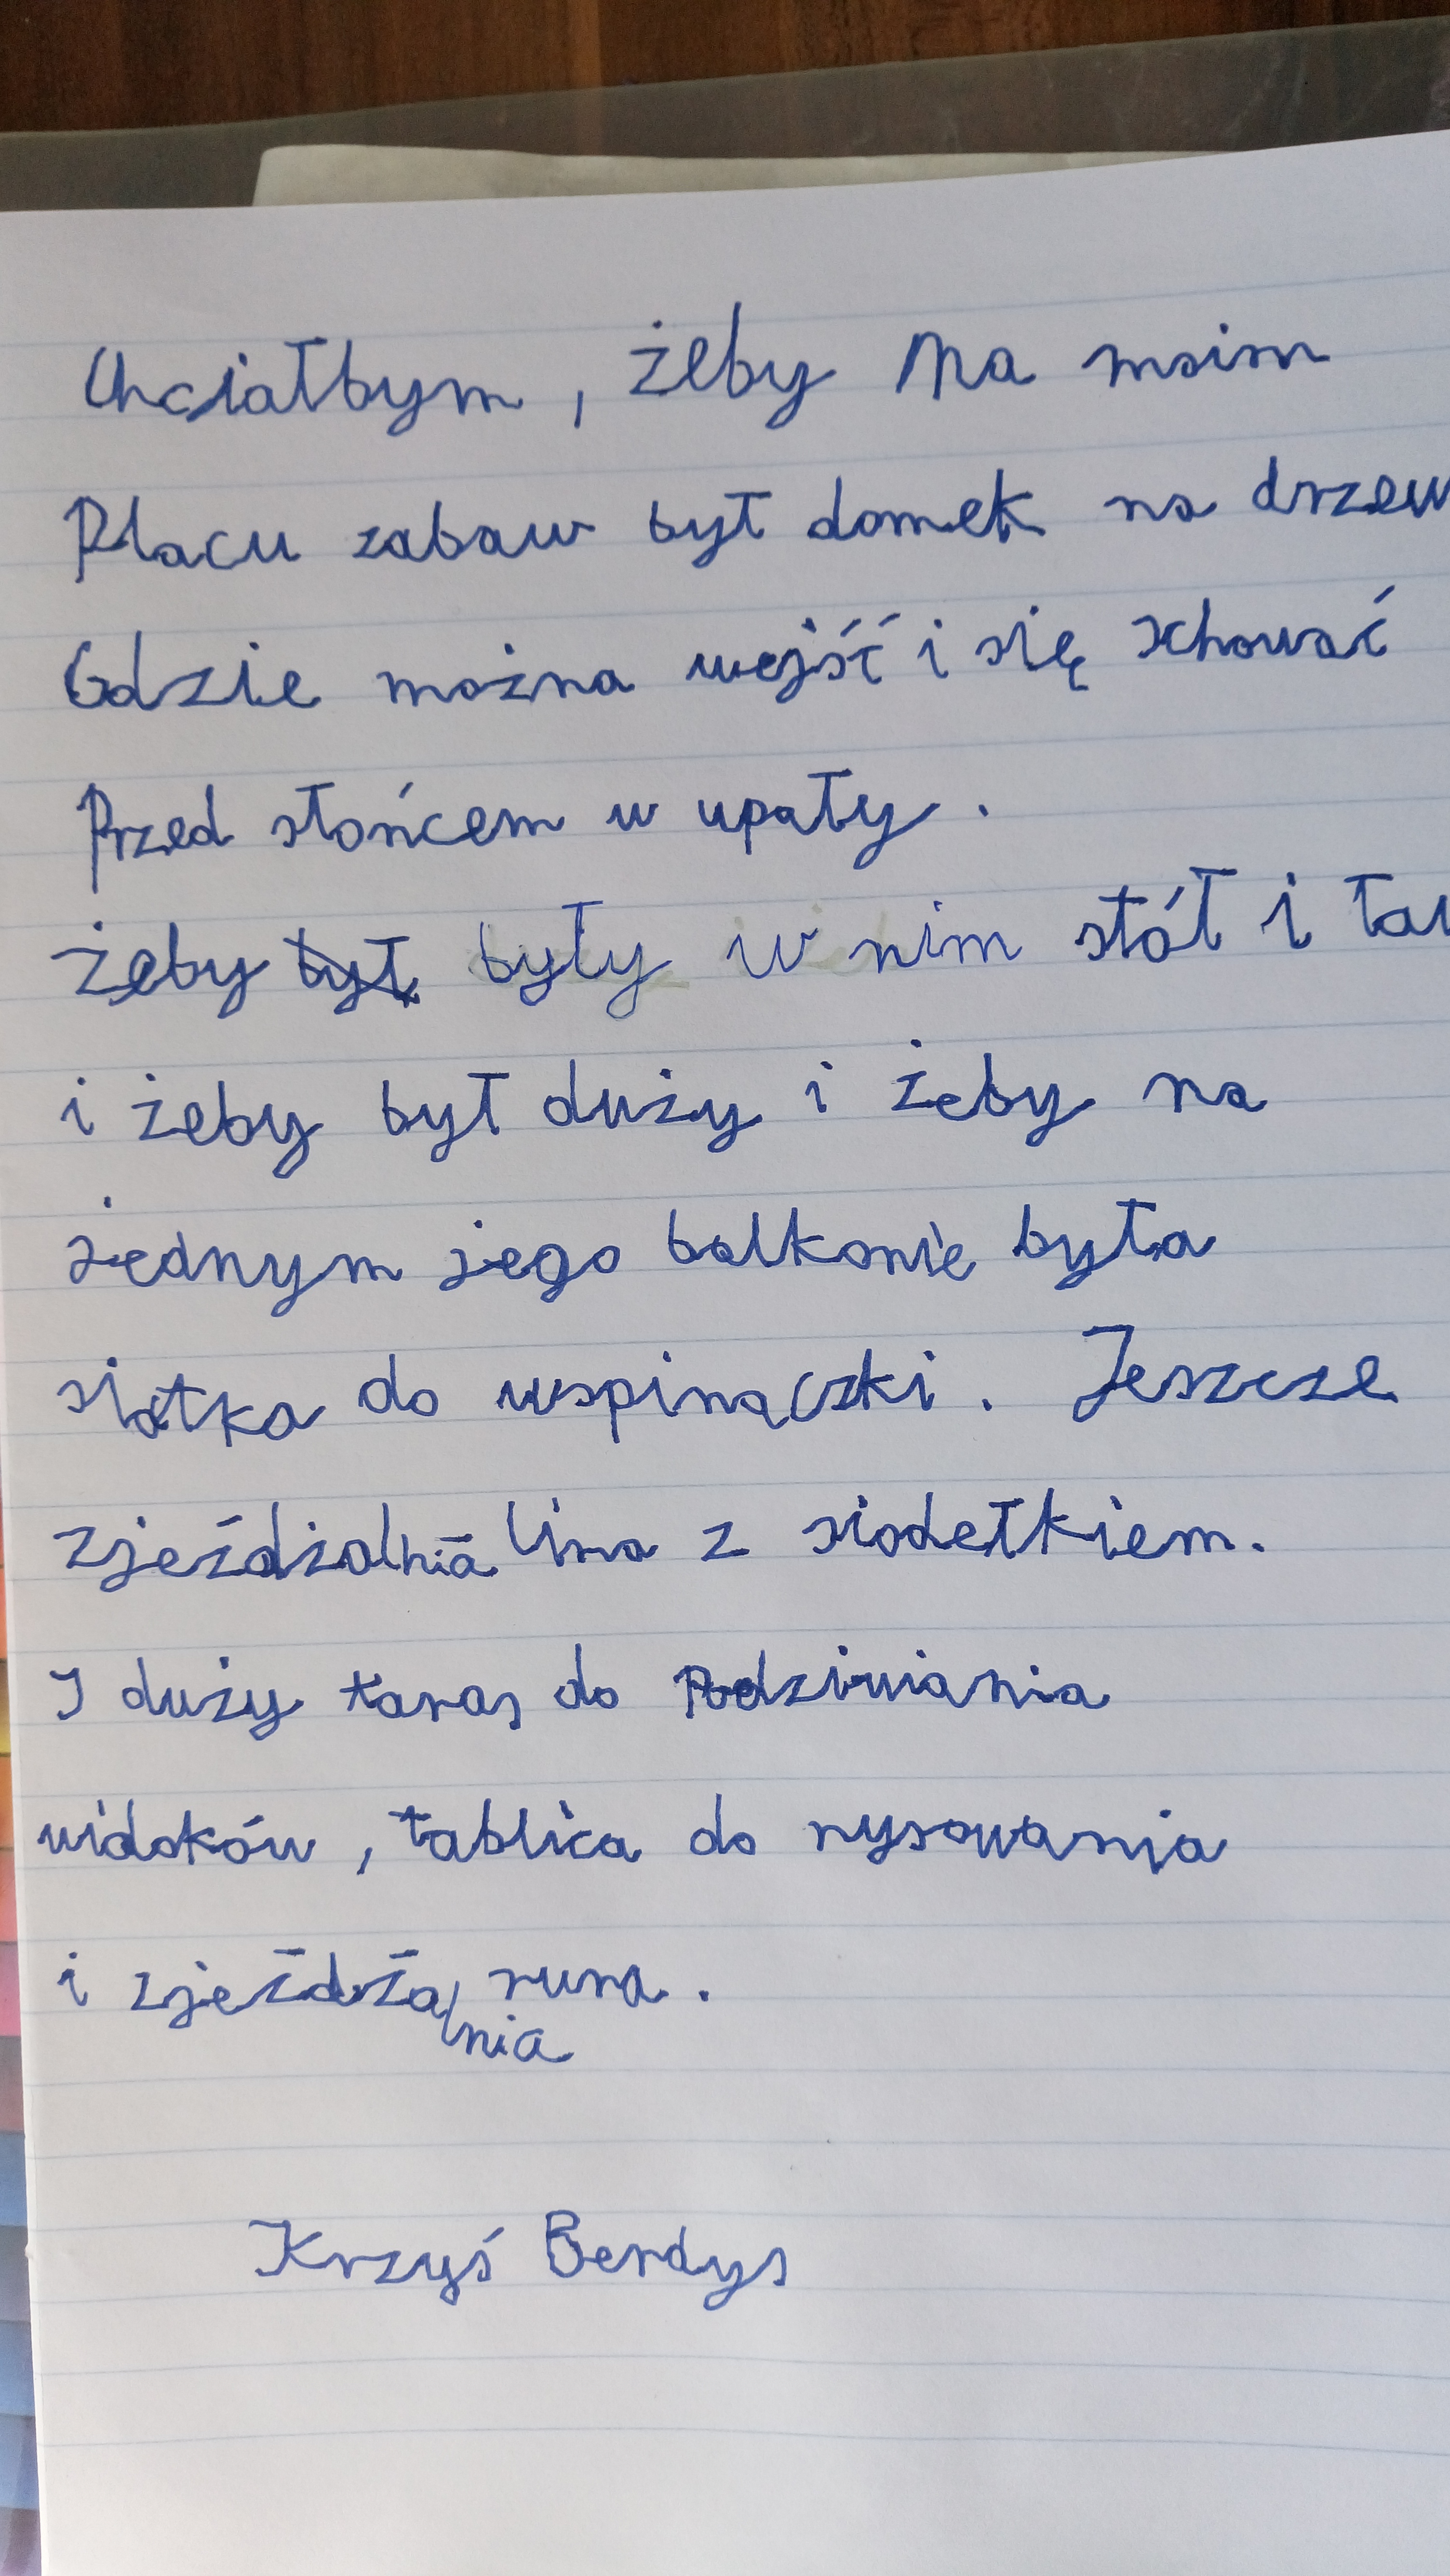 Chciałbym, żeby na moim
Placu zabaw był domek na drzew
Gdzie można wejść i się schować
Przed słońcem w upały.
żeby był były w nim stół i ław
i żeby był duży i żeby na
jednym jego balkonie była
siatka do wspinaczki. Jeszcze
zjeżdżalnia lina z siodełkiem.
I duży taras do Podziwiania
widoków, tablica do rysowania
i zjeżdżalnia rura.
Krzyś Berdys